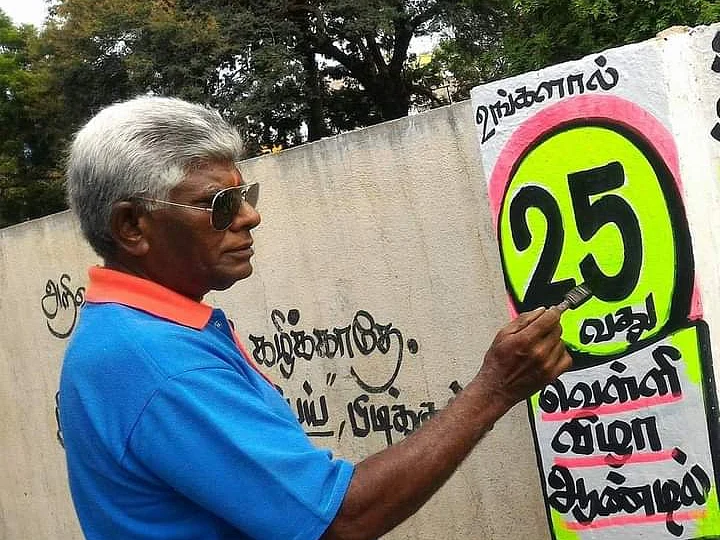 உங்களால்
25
வது
வெள்ளி
விழா
ஆண்டில்
அறிவ
கழிக்காதே.
பிடிக்க